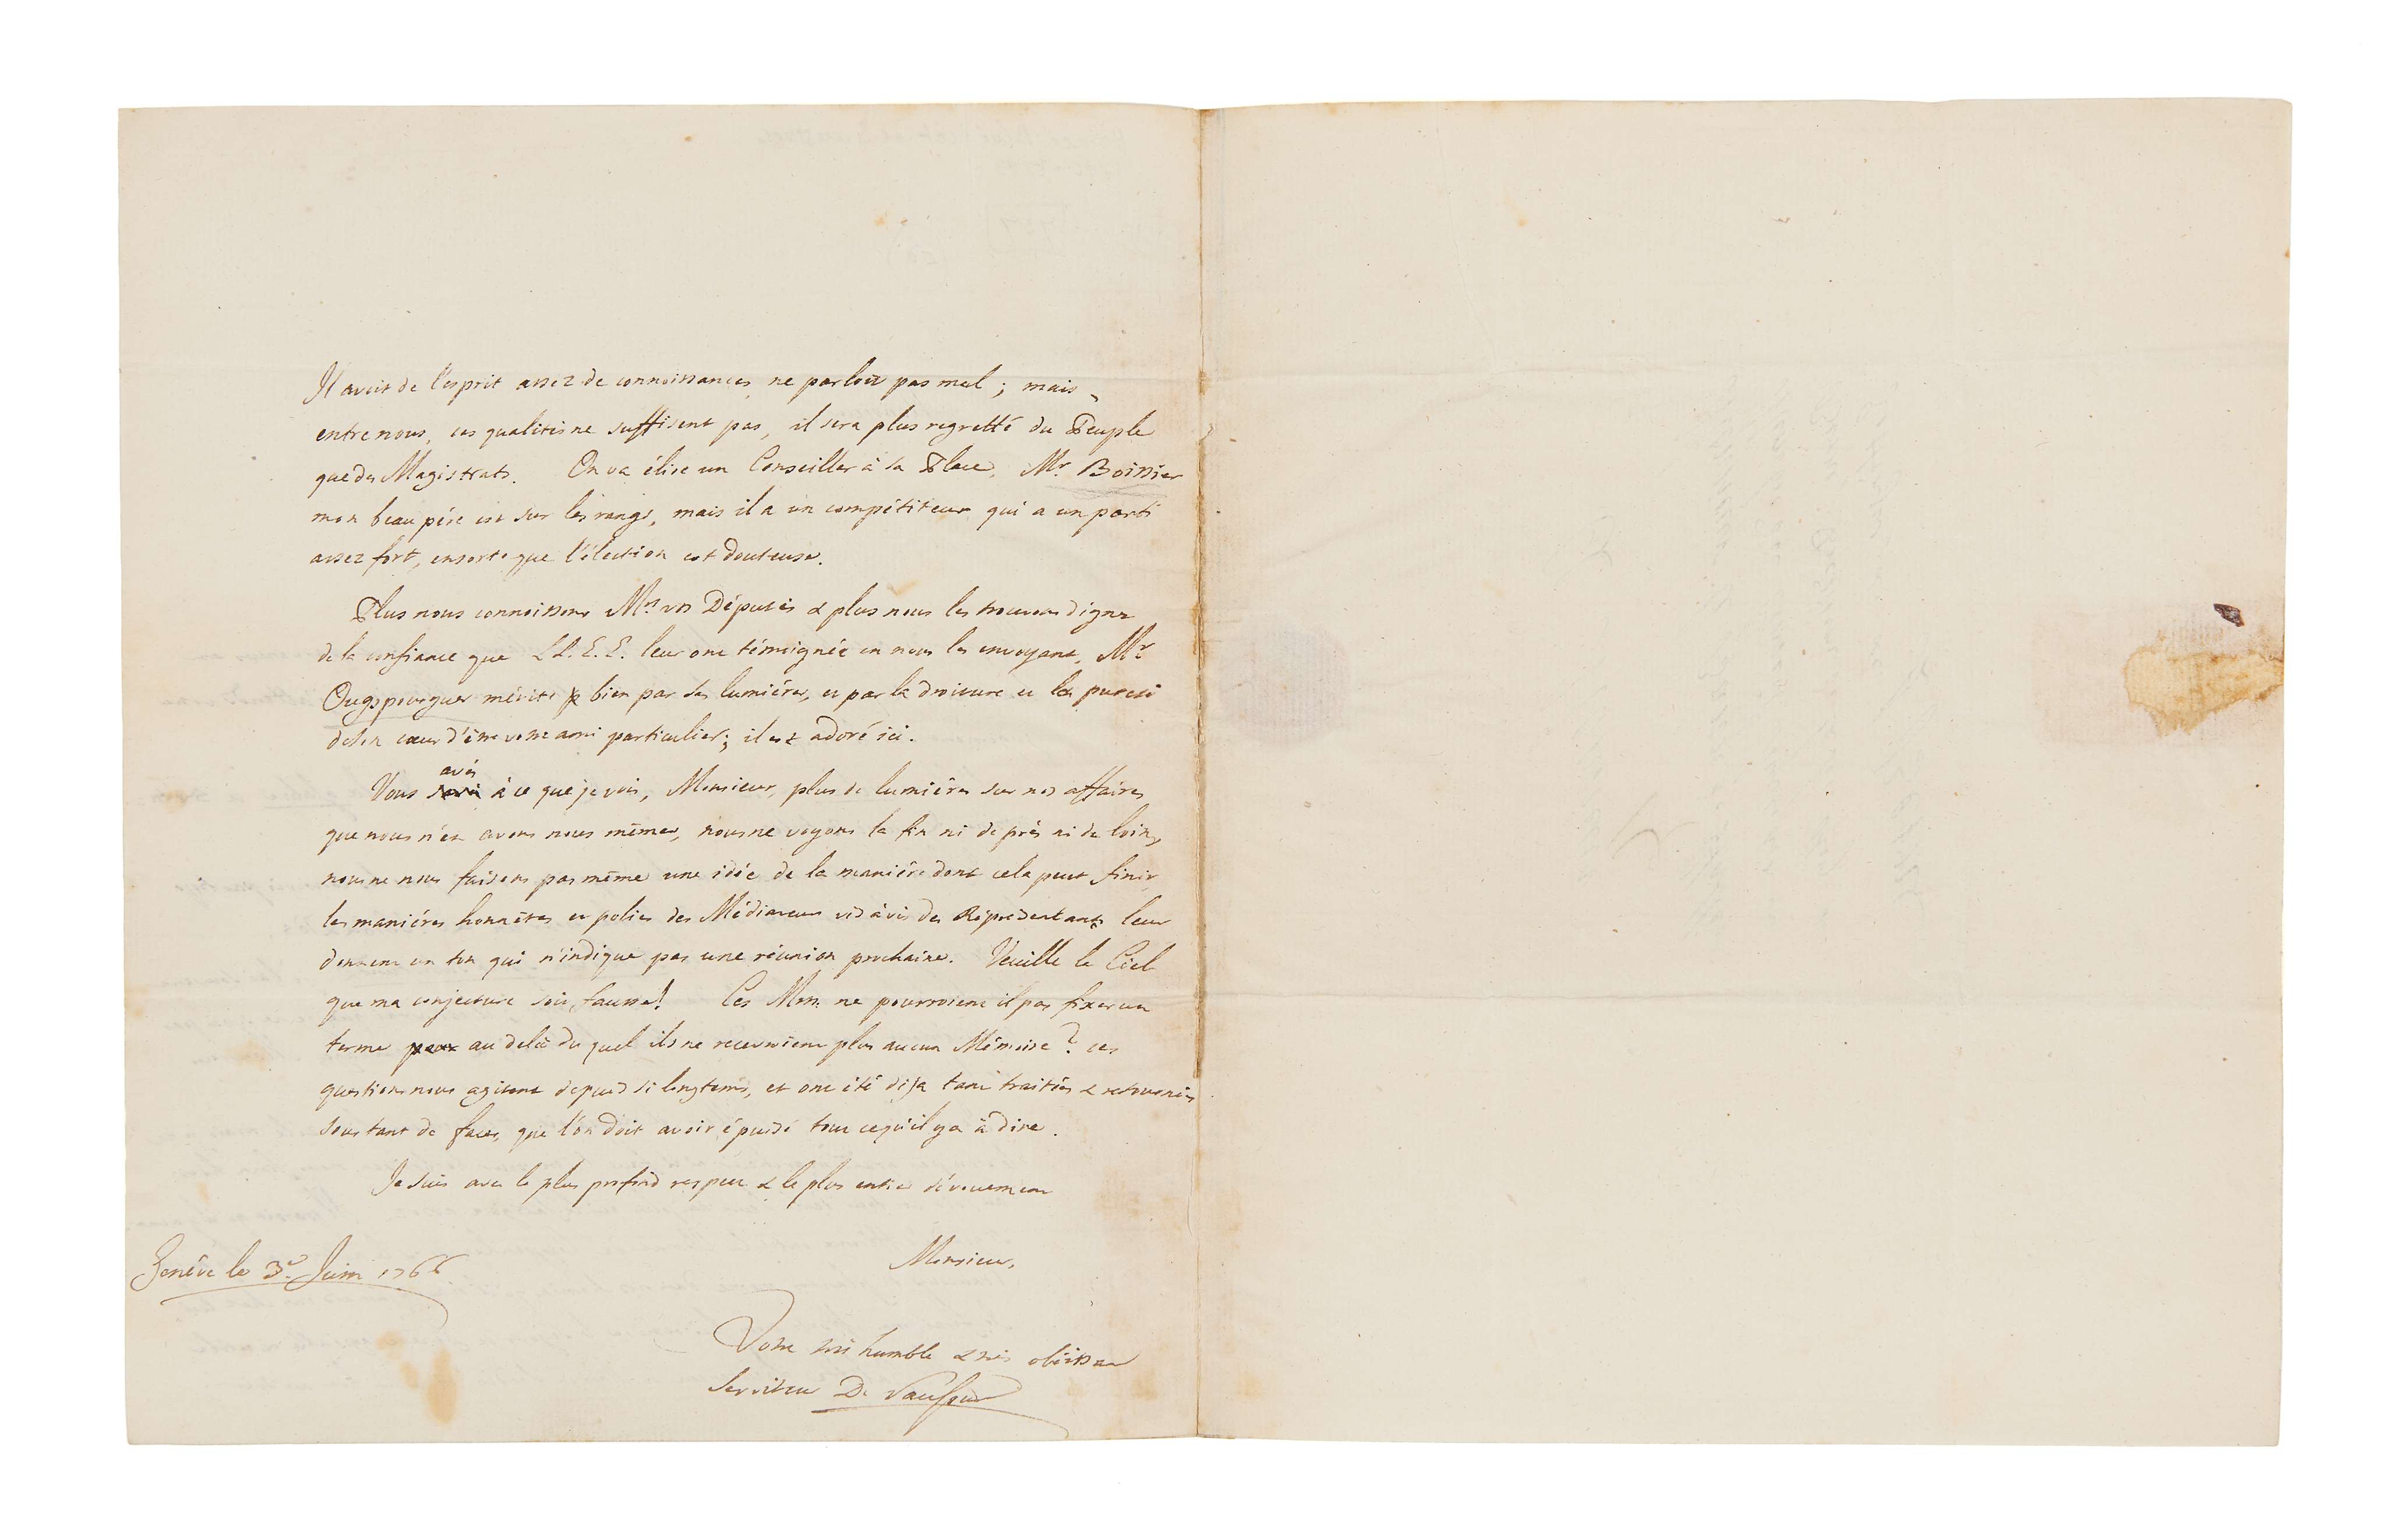 Il avoit de l'esprit assez de connoissances, ne parloit pas mal ; mais,
entre nous, ces qualités ne suffisent pas, il sera plus regretté du Peuple
que des Magistrats. On va élire un Conseiller à sa Place, Mr Boissier
mon beau pére est sur les rangs, mais il a un compétiteur qui a un parti
assez fort, ensorte que l'élection est douteuse.
Plus nous connoissons Mrs vos Députés & plus nous les trouvons dignes
de la confiance que LL. E. E. leur ont témoignée en nous les envoyant, Mr
Ougspourguer mérite bien par ses lumiéres, et par la droiture et la pureté
de son cœur d'être votre ami particulier; il est adoré ici.
Vous avés à ce que je vois, Monsieur, plus de lumiéres sur nos affaires
que nous n'en avons nous mêmes, nous ne voyons la fin ni de près ni de loin,
nous ne nous faisons pas même une idée de la maniére dont cela peut finir,
les maniéres honnêtes et polies des Médiateurs vis à vis des Représentants leur
donnent un ton qui n'indique pas une réunion prochaine. Veuille le Ciel
que ma conjecture soit fausse! Ces Mrs. ne pourroient il pas fixer un
terme au delà du quel ils ne recevroient plus aucun Mémoire? ces
questions nous agitent depuis si longtems, et ont été deja tant traitées & retournées
sous tant de faces, que l'on doit avoir épuisé tout ce qu'il y a à dire.
Je suis avec le plus profond respect & le plus entier dévouement
Monsieur,
Genêve le 3e. Juin 1766
Votre très humble & très obéissant
Serviteur De Saussure